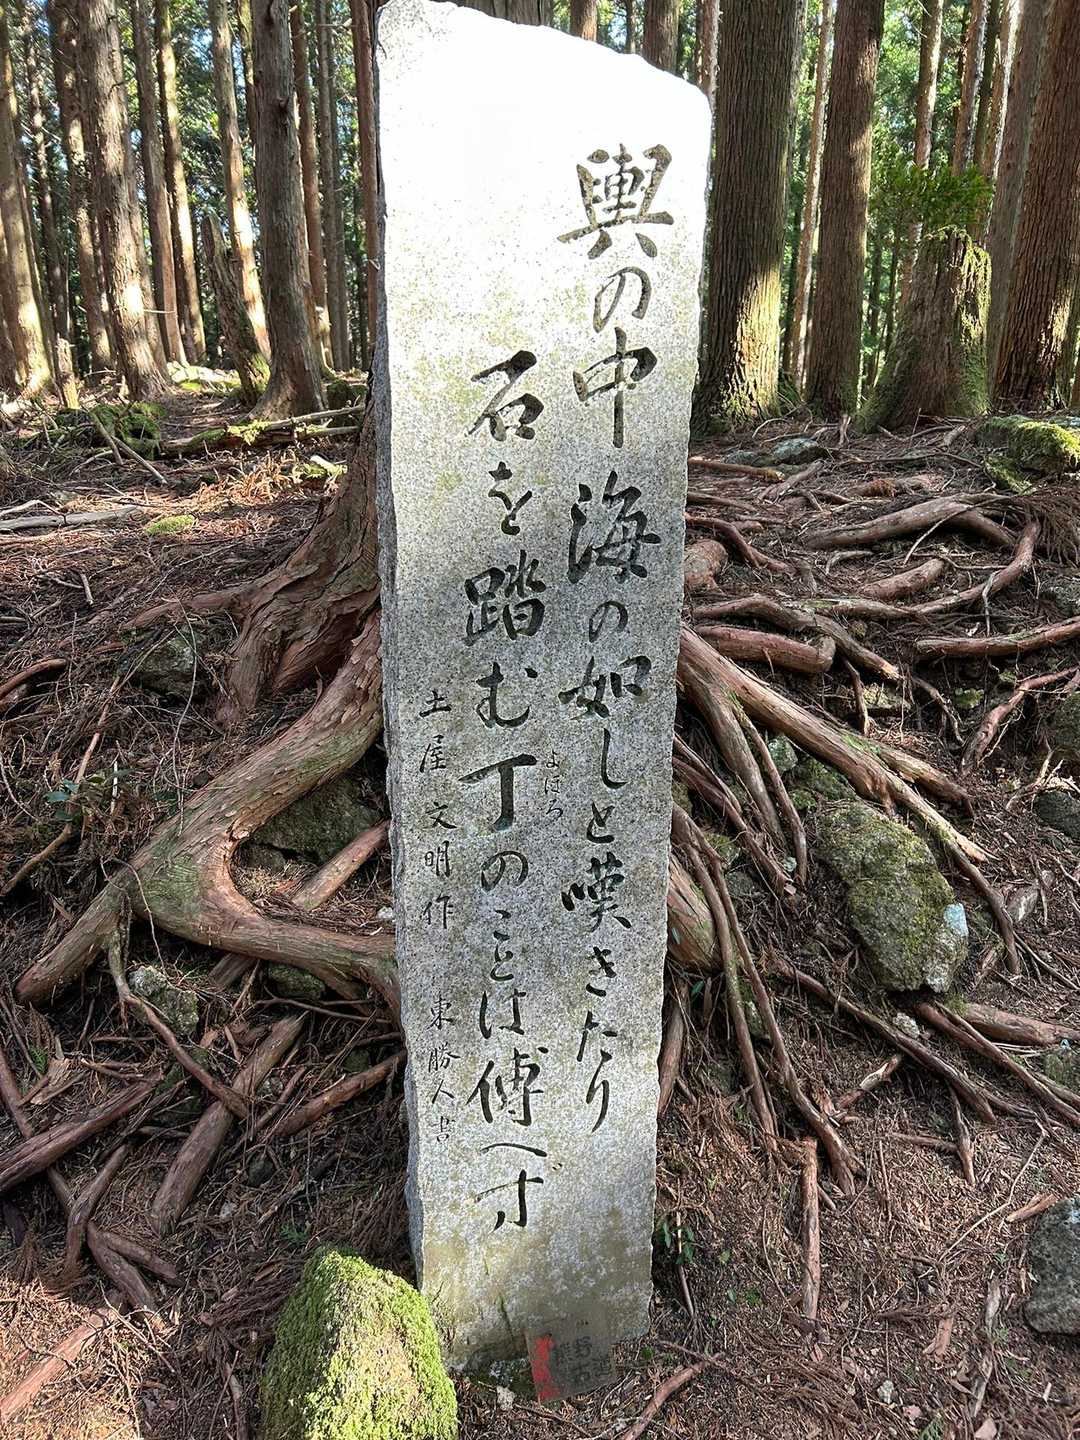 輿の中海の如しと嘆きたり
石を踏む丁のことは傳へず
よぼろ
土屋文明作 東勝人書
熊野古道